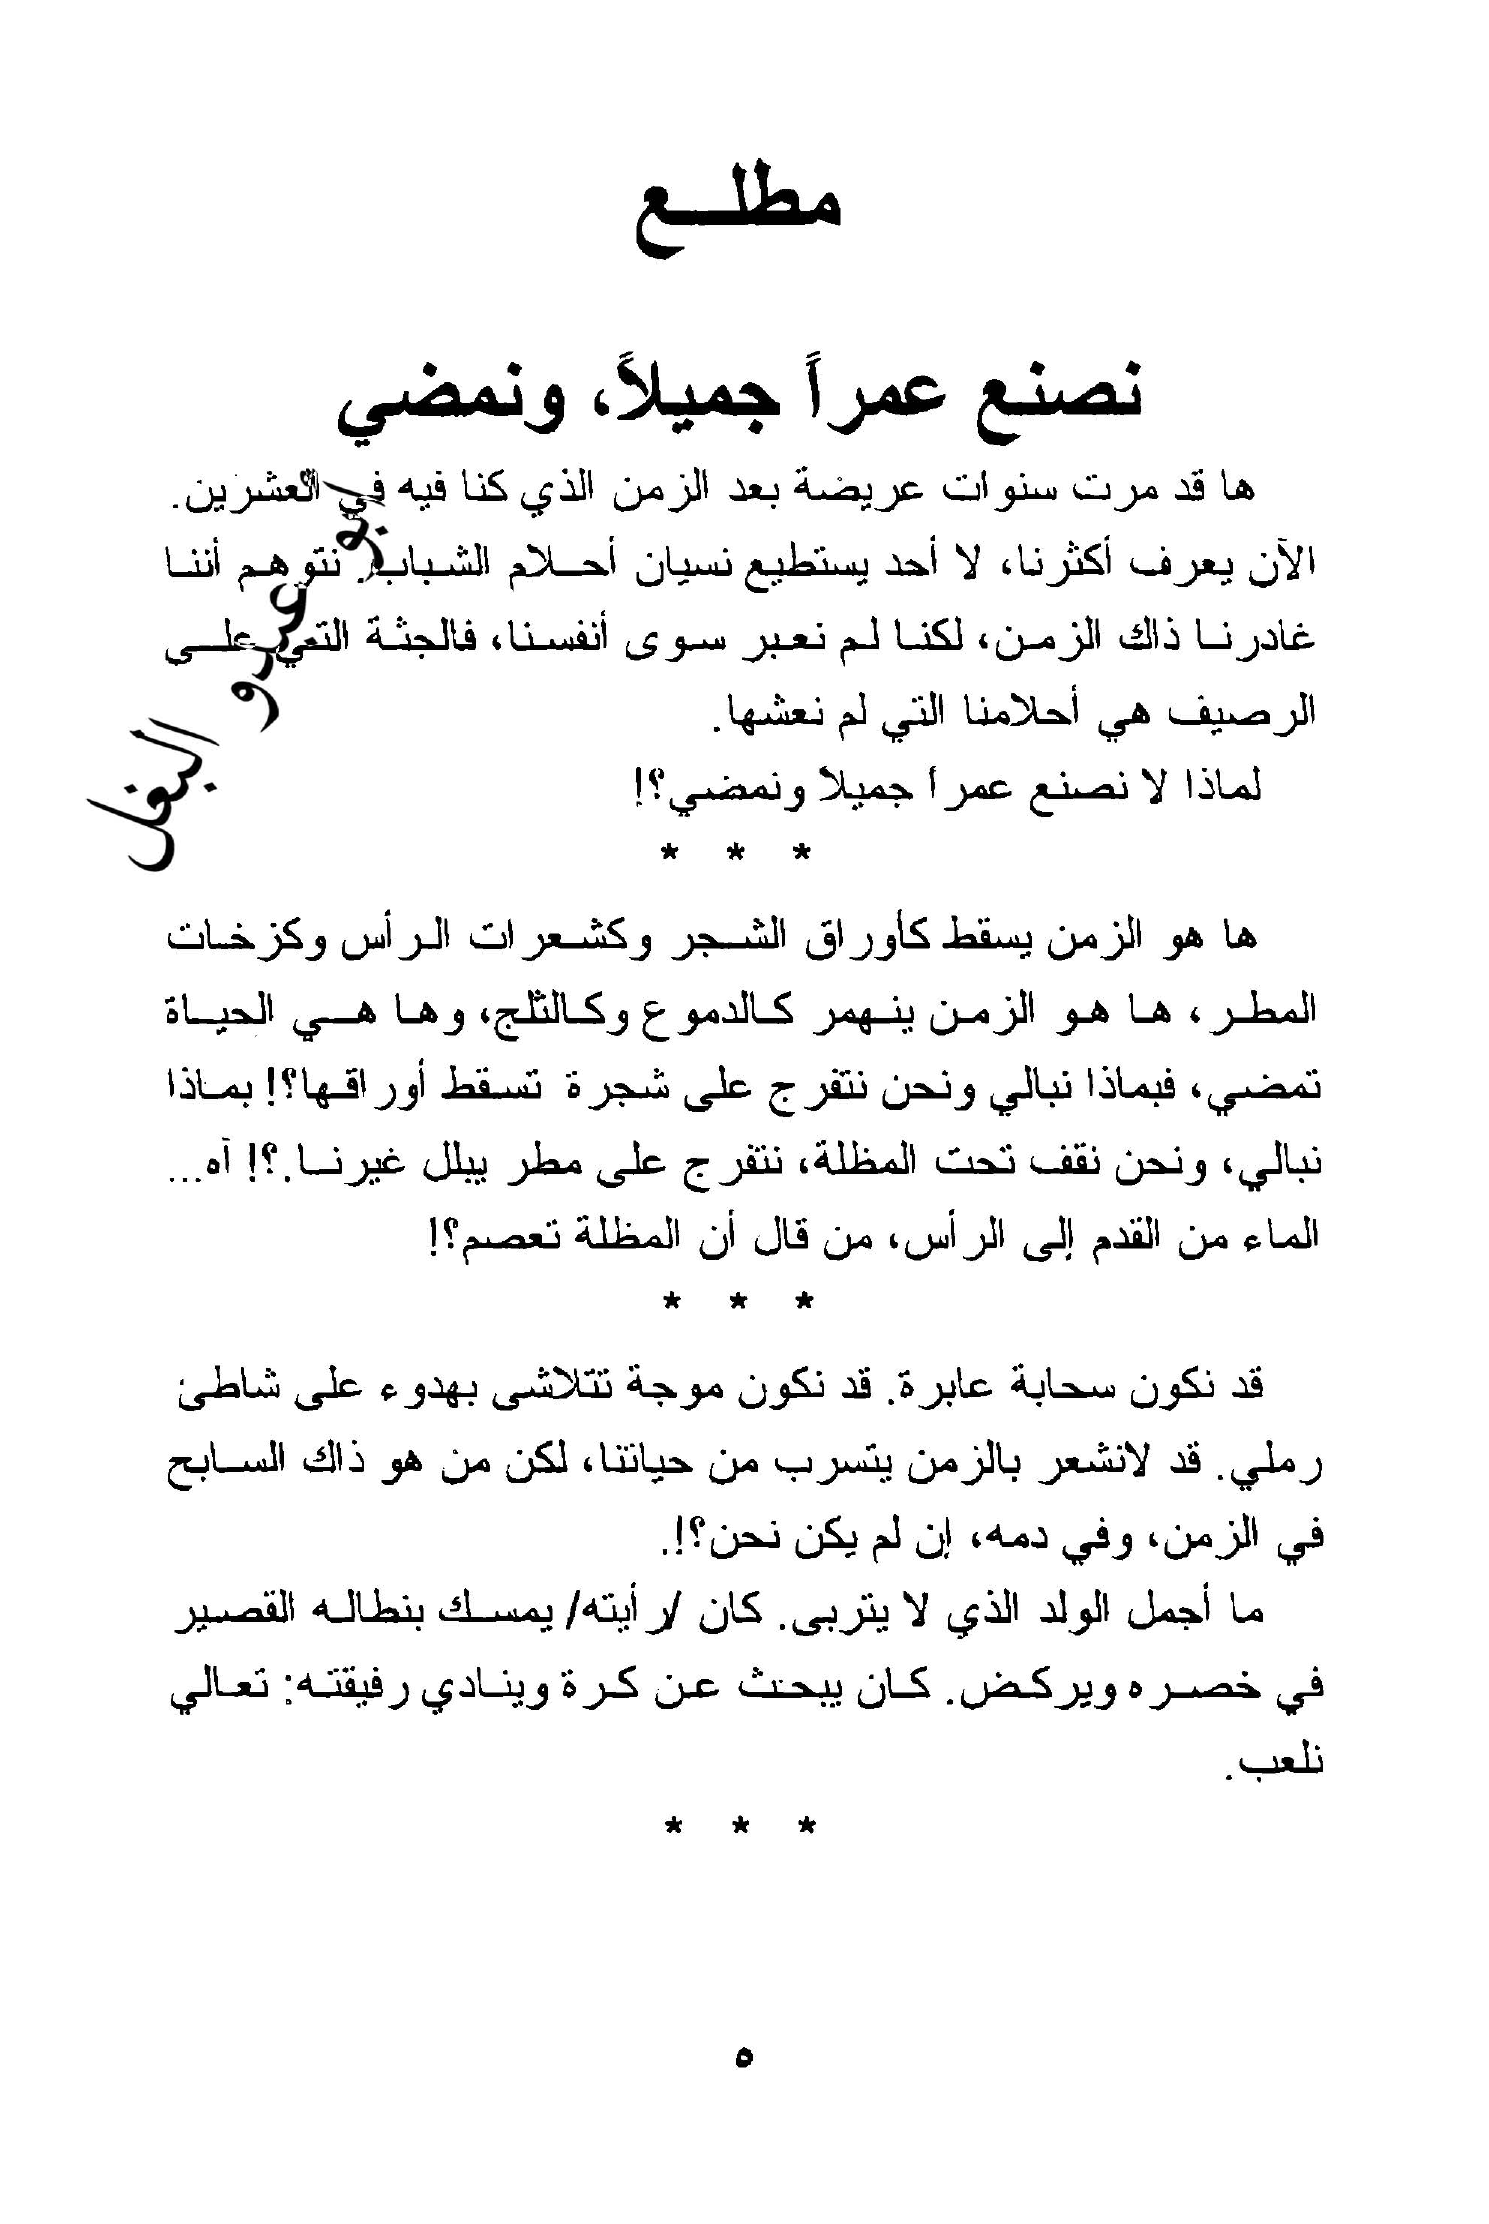 مطلع
نصنع عمراً جميلاً، ونمضي
ها قد مرت سنوات عريضة بعد الزمن الذي كنا فيه في العشرين.
الآن يعرف أكثرنا، لا أحد يستطيع نسيان أحلام الشباب. نتوهم أننا
غادرنا ذاك الزمن، لكننا لم نعبر سوى أنفسنا، فالجثة التي على
الرصيف هي أحلامنا التي لم نعشها.
لماذا لا نصنع عمراً جميلاً ونمضي؟!
* * *
ها هو الزمن يسقط كأوراق الشجر وكشعرات الرأس وكزخات
المطر، ها هو الزمن ينهمر كالدموع وكالثلج، وها هي الحياة
تمضي، فبماذا نبالي ونحن نتفرج على شجرة تسقط أوراقها؟! بماذا
نبالي، ونحن نقف تحت المظلة، نتفرج على مطر يبلل غيرنا.؟! آه...
الماء من القدم إلى الرأس، من قال أن المظلة تعصم؟!
* * *
قد نكون سحابة عابرة. قد نكون موجة تتلاشى بهدوء على شاطئ
رملي. قد لانشعر بالزمن يتسرب من حياتنا، لكن من هو ذاك السابح
في الزمن، وفي دمه، إن لم يكن نحن؟!.
ما أجمل الولد الذي لا يتربى. كان /رأيته/ يمسك بنطاله القصير
في خصره ويركض. كان يبحث عن كرة وينادي رفيقته: تعالي
نلعب.
* * *
٥
أبو عبدو البغل